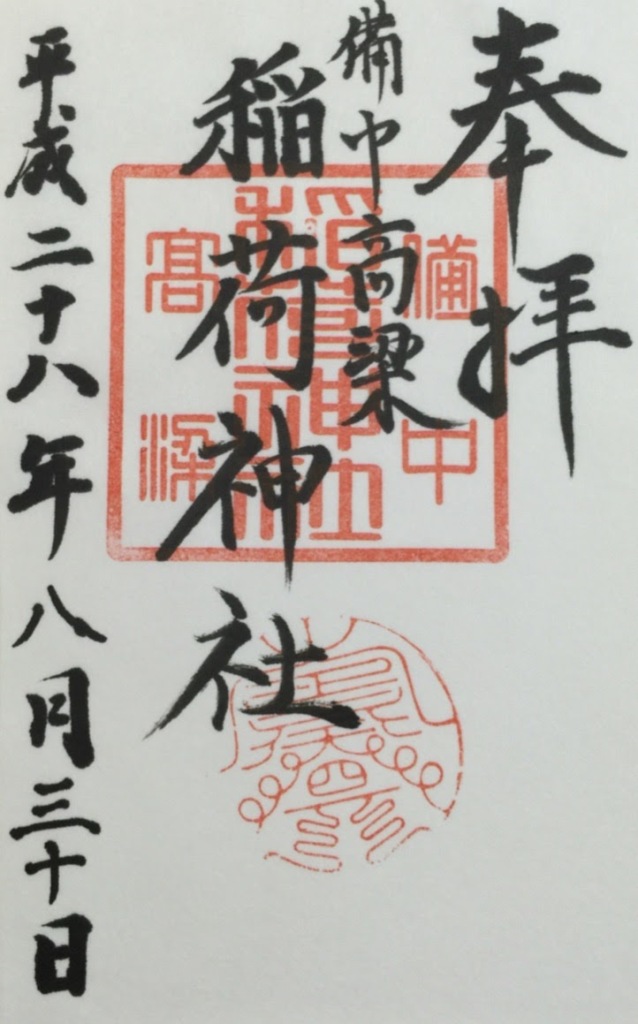 奉拝
備中高梁
稲荷神社
平成二十八年八月三十日
備中
稲荷神社
高梁